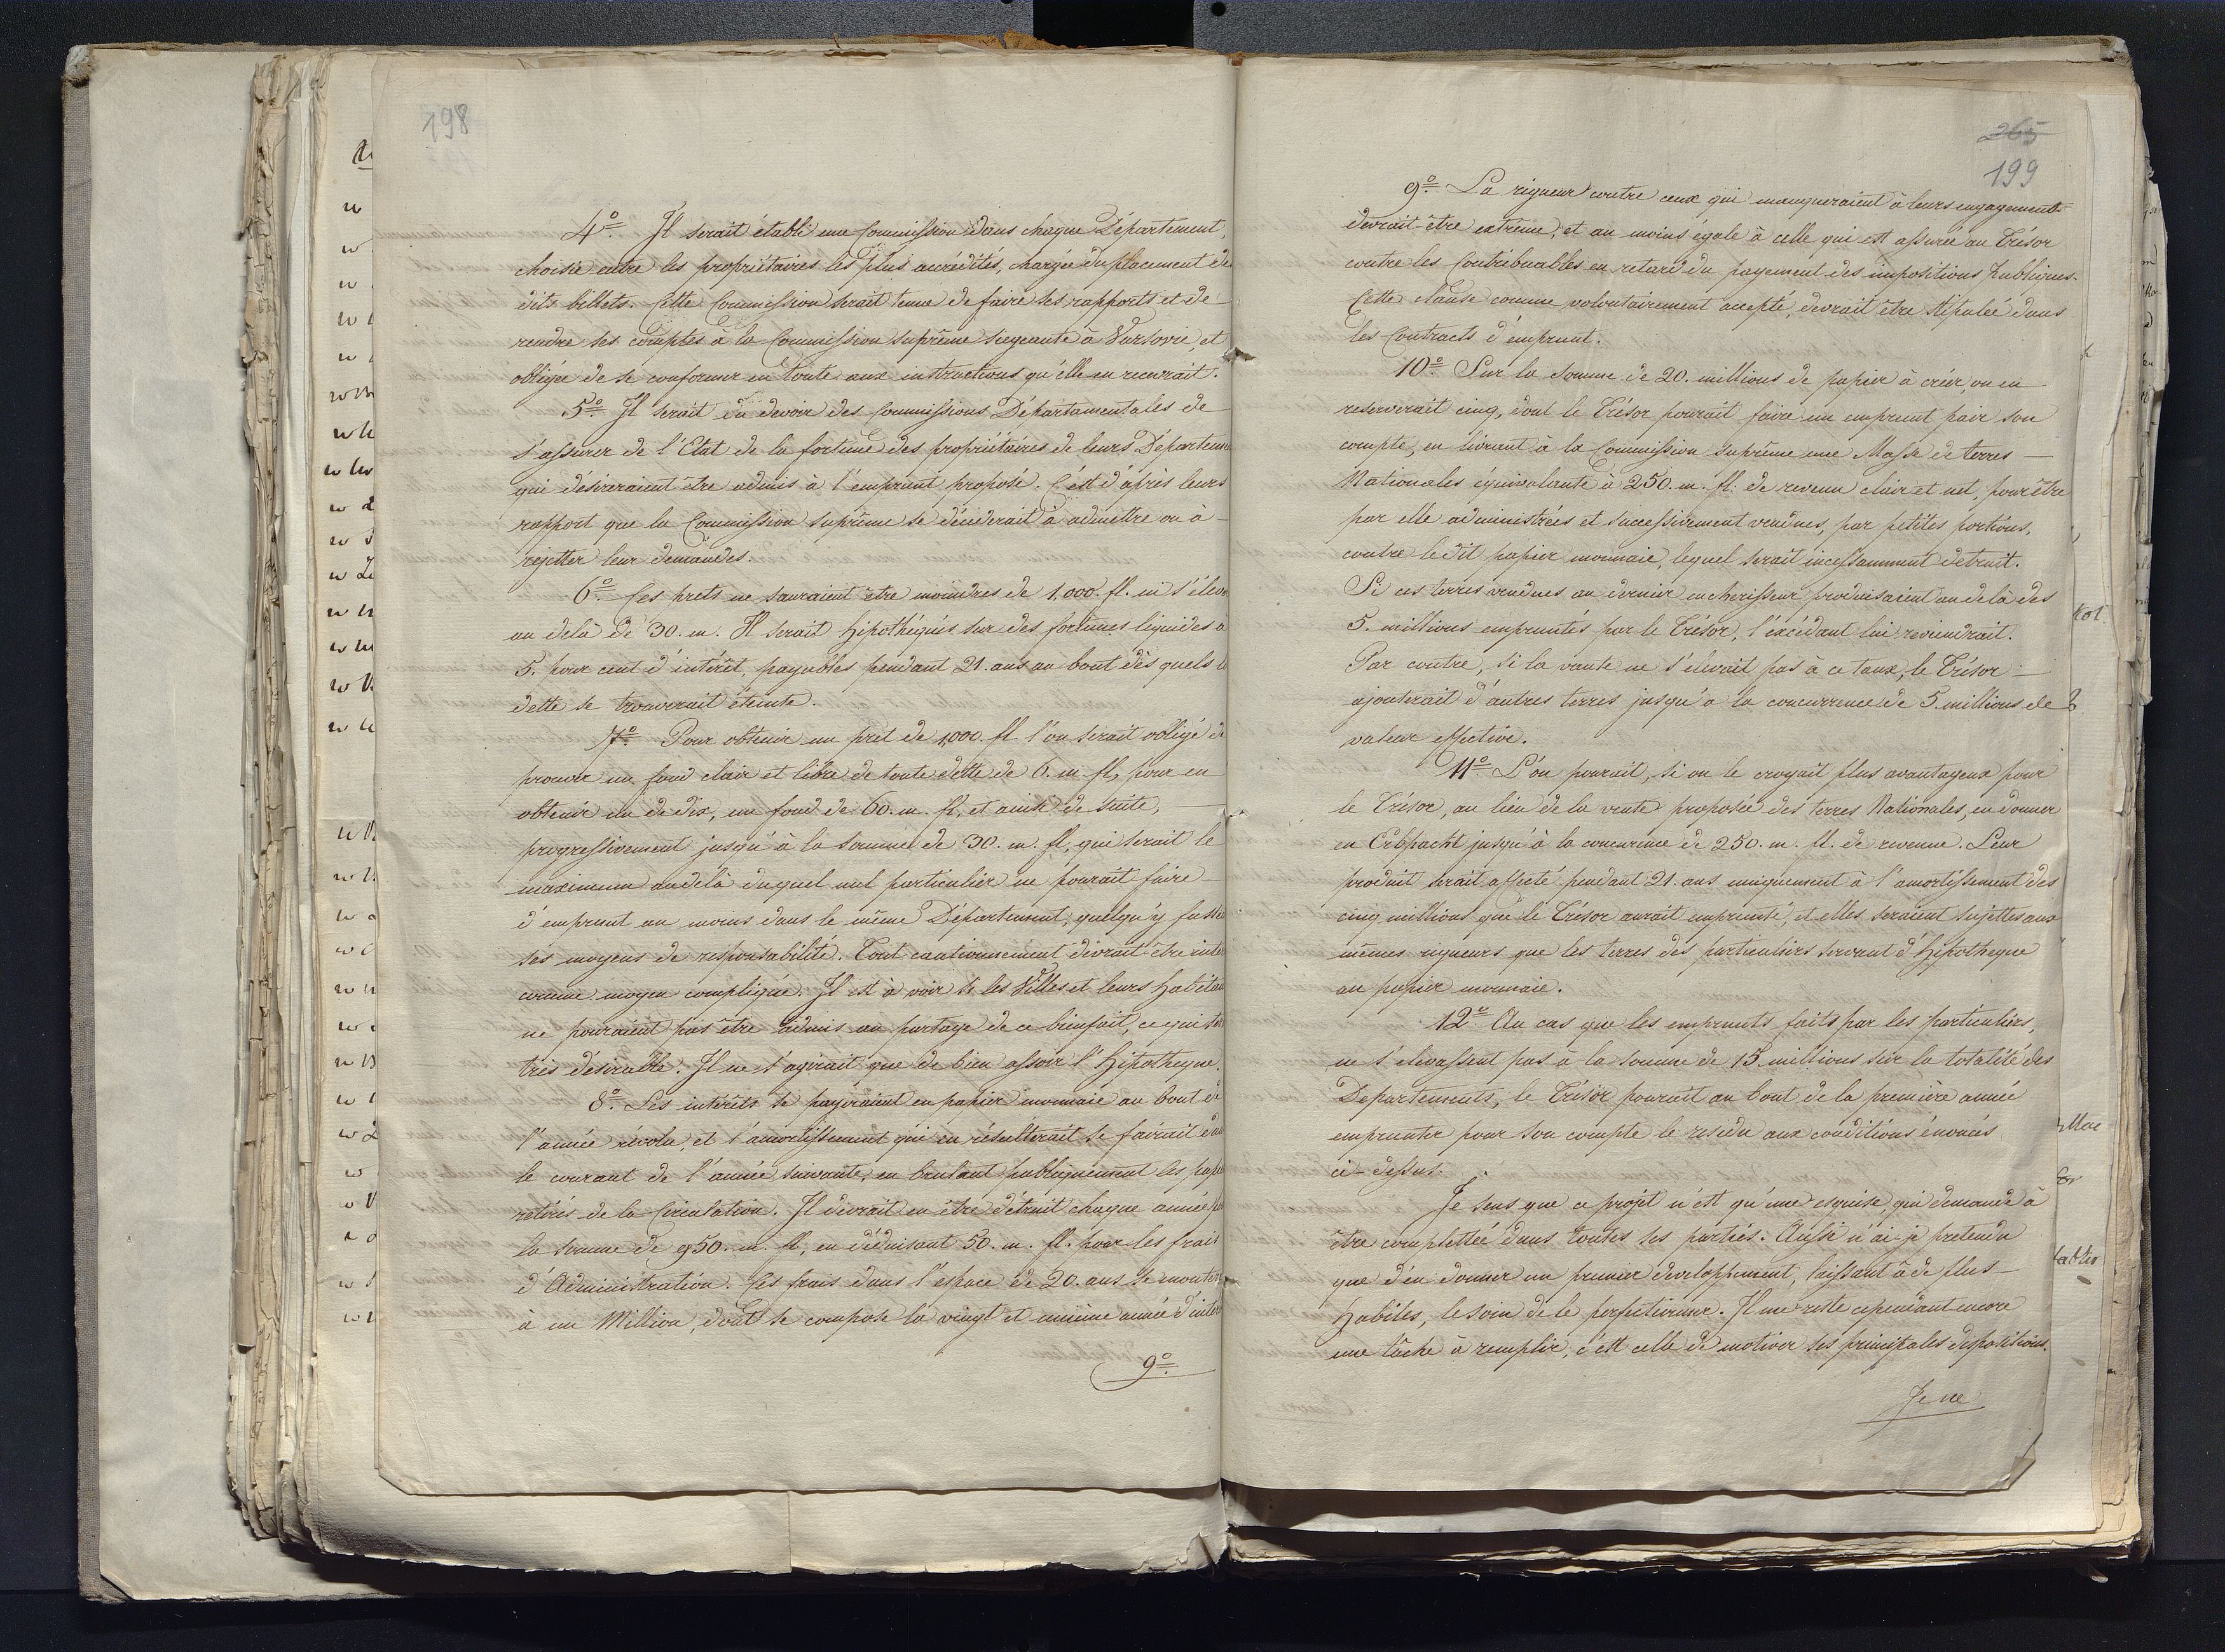 198
4º. Il serait établi une Commission dans chaque Département,
choisie entre les propriétaires les plus accrédités, chargée du placement de
dits billets. Cette Commission serait tenue de faire ses rapports et de
rendre ses comptes à la Commission suprême siegeante à Varsovie, et
obligée de se conformer en toute aux instructions qu'élle en recevrait.
5º. Il serait du devoir des Commissions Départamentales de
s'assurer de l'Etat de la fortune des propriétaires de leurs Départeme
qui désireraient être admis à l'emprunt proposé. C'est d'après leurs
rapport que la Commission suprême se déciderait à admettre ou à
rejetter leur demandes.
6º. Ces prets ne sauraient être moindres de 1.000. fl. ni s'élever
au delà de 30. m. Il serait hipothéqués sur des fortunes liquides a
5. pour cent d'intérêt, payables pendant 21. ans au bout dès quels l
dette se trouverait éteinte.
7º. Pour obtenir un prêt de 1,000. fl. l'on serait obligé de
prouver un fond clair et libre de toute dette de 6. m. fl, pour en
obtenir un de dix, un fond de 60. m. fl. et ainsi de suite,
progressivement jusqu'à la somme de 30. m. fl, qui serait le
maximum audelà duquel nul particulier ne pourait faire
d'emprunt au moins dans le même Département, quelqu'y fusse
ses moyens de responsabilité. Tout cautionnement devrait être inter
comme moyen compliqué. Il est à voir si les Villes et leurs Habitan
ne pouraient pas être admis au partage de ce bienfait, ce qui
très désirable. Il ne s'agirait que de bien assoir l'Hipotheque.
8º. Les intérêts se payeraient en papier monnaie au bout de
l'année révolu, et l'amortissement qui en résulterait se fairait da
le courant de l'année suivante, en brulant publiquement les pap
retirés de la Circulation. Il devrait en être détruit chaque année p
la somme de 950. m. fl, en déduisant 50. m. fl. pour les frais
d'Administration. Ces frais dans l'espace de 20. ans se monter
à un Million, dont se compose la vingt et unième année d'inter
9º.
265
199
9º. La rigueur contre ceux qui manqueraient à leurs engagements
devrait-être extrême, et au moins égale à celle qui est assurée au Trésor
contre les Contribuables en retard du payement des impositions publiques.
Cette clause comme volontairement accepté, devrait être stipulée dans
les Contracts d'emprunt.
10º. Sur la somme de 20. millions de papier à créer, on en
reserverait cinq, dont le Trésor pourait faire un emprunt pair son
compte, en livrant à la Commission suprême une Masse de terres
Nationales équivalante à 250. m. fl. de revenu clair et net, pour être
par elle administrées et successivement vendues, par petites portions,
contre ledit papier monnaie, lequel serait incessamment detruit.
Si ces terres vendues au dernier encherisseur produisaient au delà des
5. millions empruntés par le Trésor, l'excédant lui reviendrait.
Par contre, si la vante ne s'élevait pas à ce taux, le Trésor
ajouterait d'autres terres jusqu'a la concurrence de 5. millions de
valeur effective.
11º. L'on pourait, si on le croyait plus avantageux pour
le Trésor, au lieu de la vente proposée des terres Nationales, en donner
en Erbpacht jusqu'à la concurence de 250. m. fl. de revenue. Leur
produit serait affecté pendant 21. ans uniquement à l'amortissement des
cinq millions que le Trésor aurait emprunté, et elles seraient sujettes aux
mêmes rigueurs que les terres des particuliers servant d'Hipotheque
au papier monnaie.
12º Au cas que les emprunts faits par les particuliers,
ne s'elevassent pas à la somme de 15. millions sur la totalité des
Departements, le Trésor pourait au bout de la première année
emprunter pour son compte le residu aux conditions énoncés
ci-dessus.
Je sens que ce projet n'est qu'une esquise, qui demande à
être complettée dans toutes ses parties. Aussi n'ai-je pretendu
que d'en donner un premier developpement, laissant à de plus
Habiles, le soin de le perfectionner. Il me reste cependant encore
une tâche à remplir, c'est celle de motiver ses principales dispositions.
Je ne